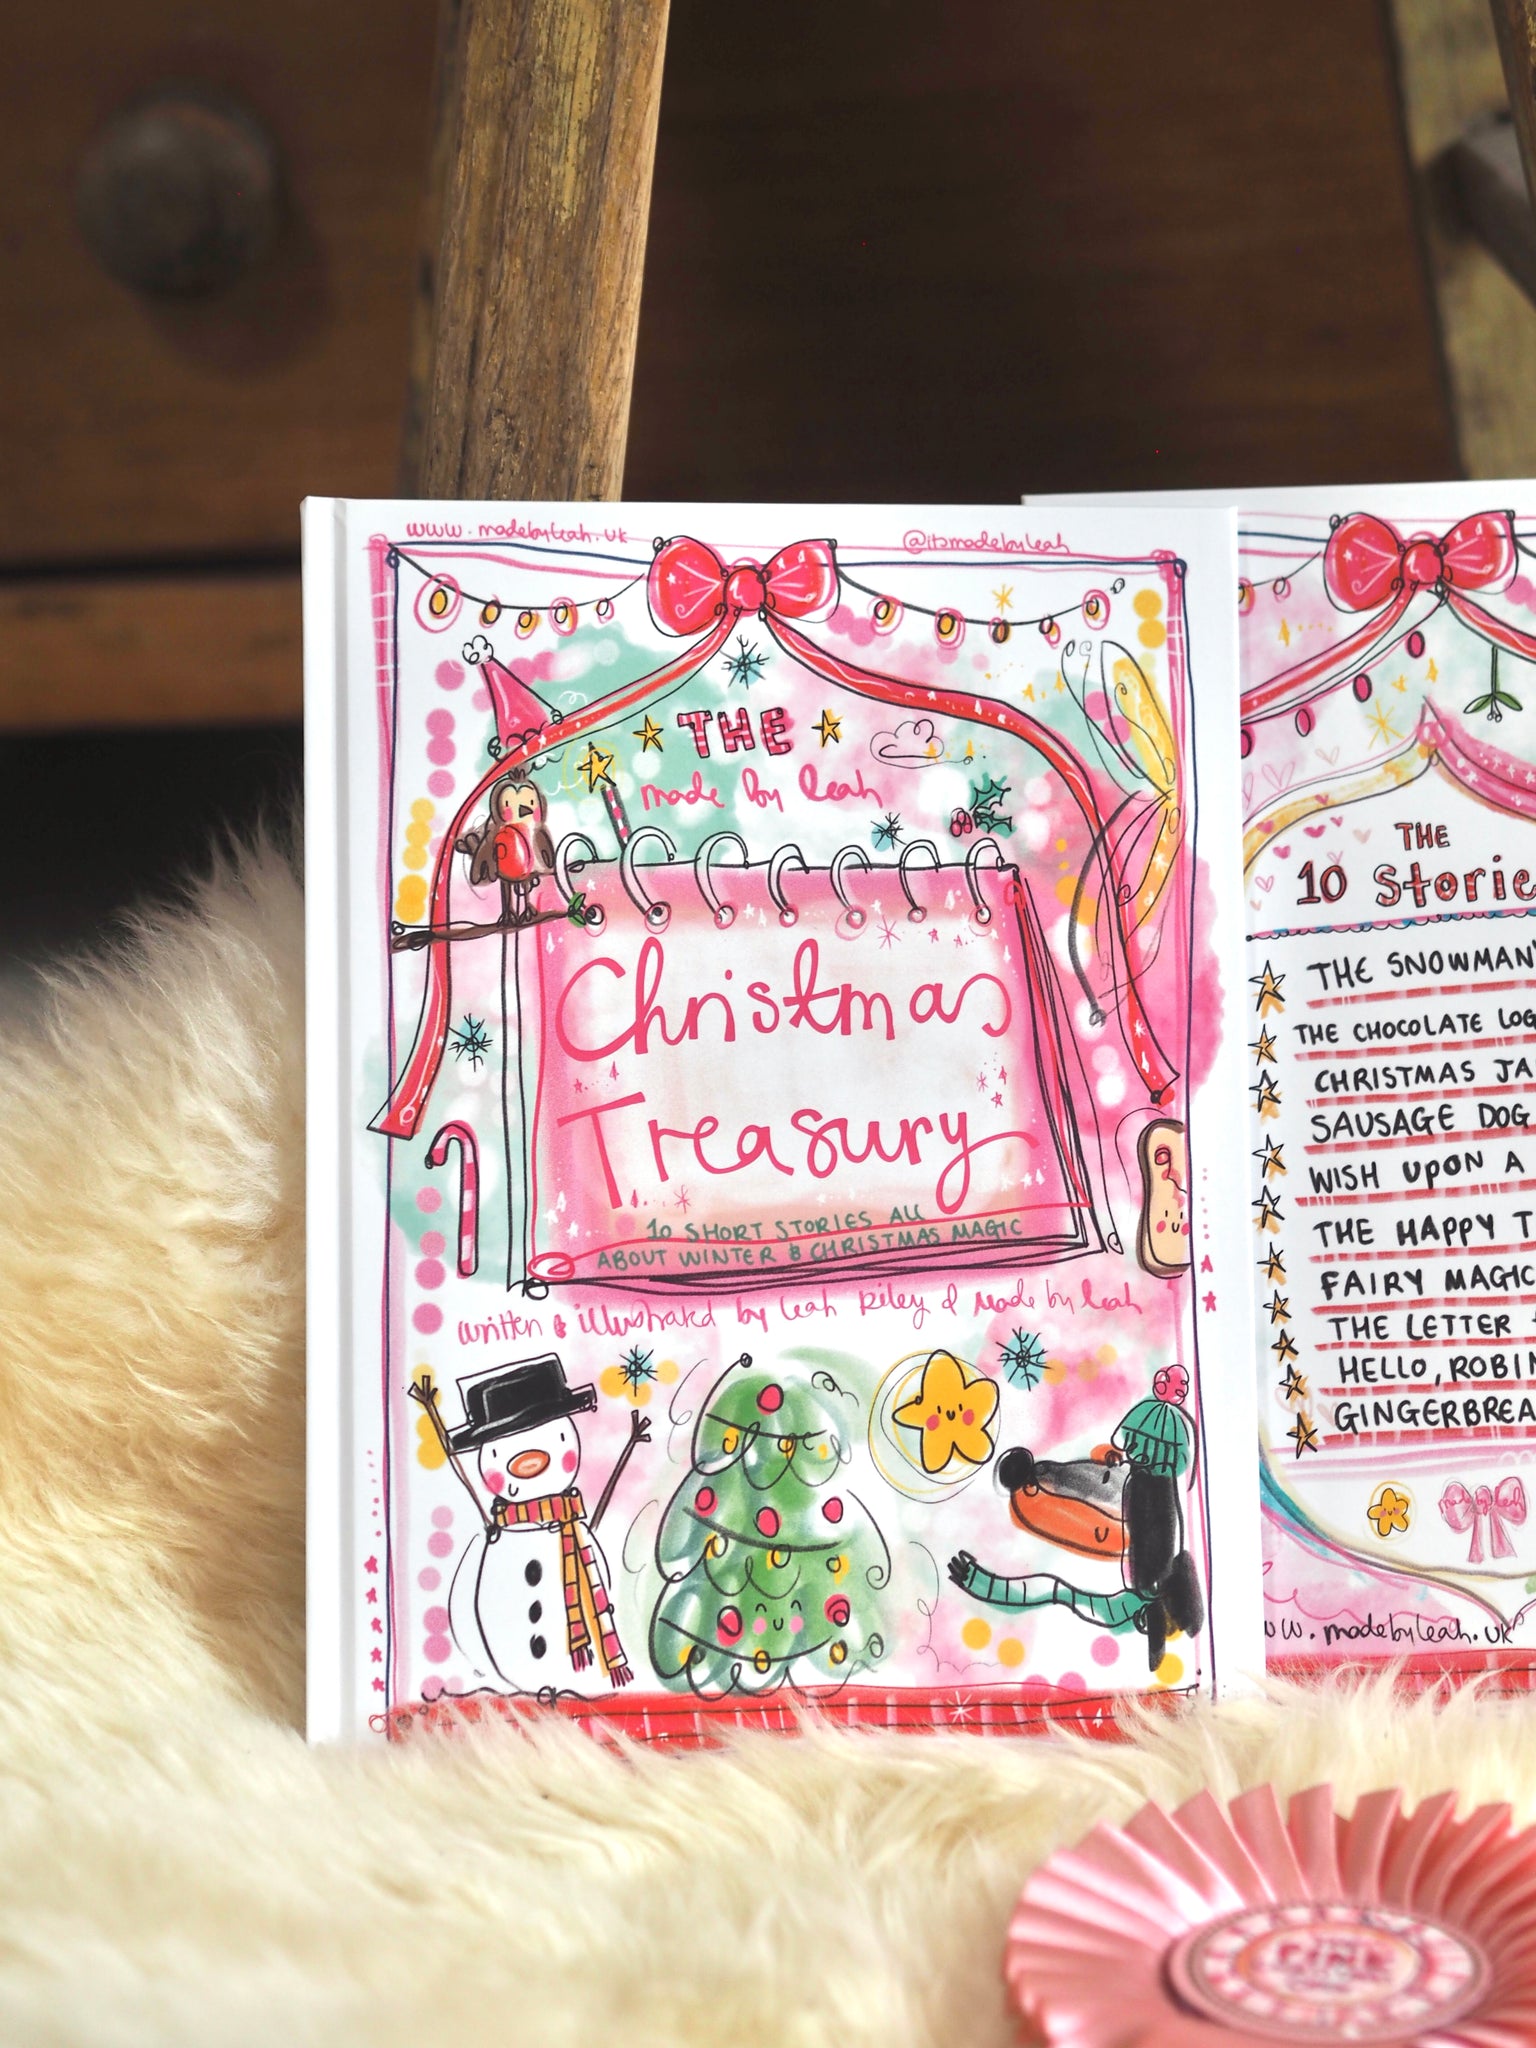 www.madebyleah.uk
@itsmadebyleah
THE
made by leah
Christmas
Treasury
10 SHORT STORIES ALL
ABOUT WINTER & CHRISTMAS MAGIC
written & illustrated by leah Riley @ Made by leah
THE
10 Stories
THE SNOWMAN'
THE CHOCOLATE LOG
CHRISTMAS JA
SAUSAGE DOG
WISH UPON A
THE HAPPY T
FAIRY MAGIC
THE LETTER
HELLO, ROBIN
GINGERBREA
made by leah
www.madebyleah.uk
PINK